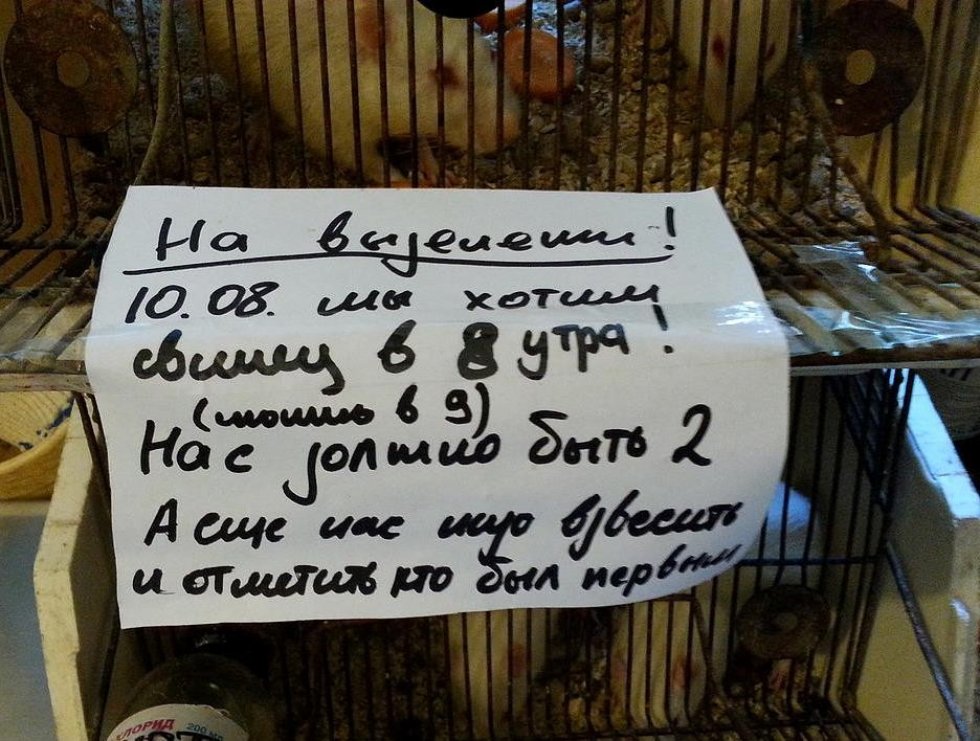 На выделении!
10.08. мы хотим
свинец в 8 утра!
(можно в 9)
Нас должно быть 2
А еще нас нужно взвесить
и отметить кто был первым
ХЛОРИД
200 мл